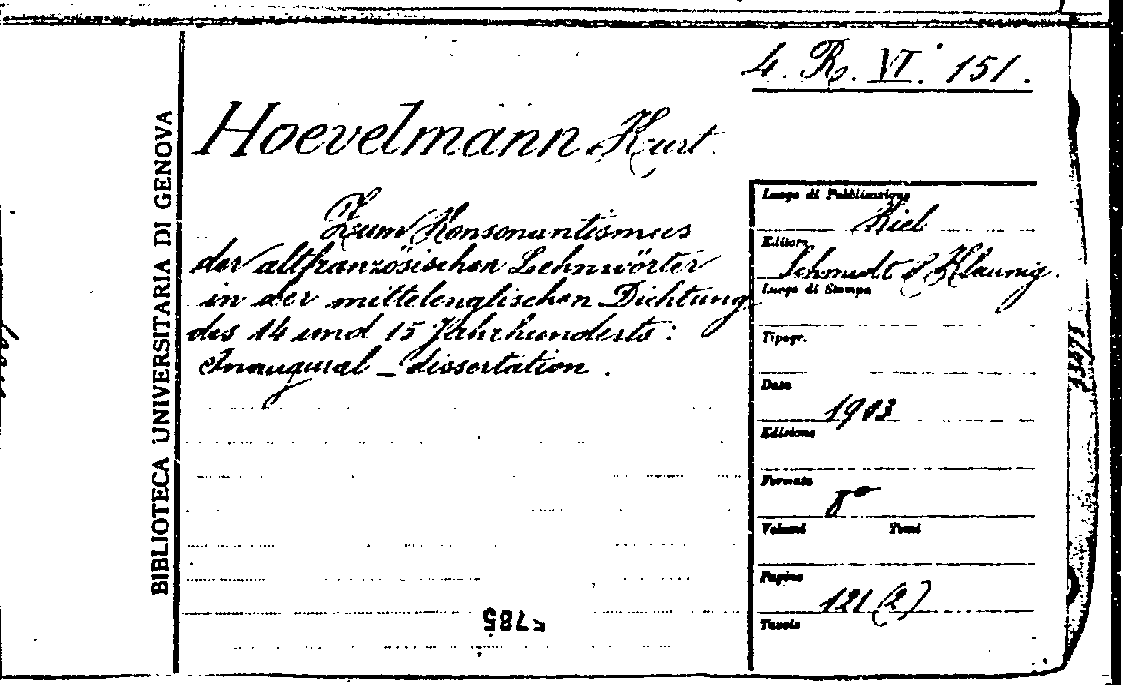 4. R. VI. 151.
BIBLIOTECA UNIVERSITARIA DI GENOVA
Hoevelmann Kurt.
Zum Konsonantismus
der altfranzösischen Lehnwörter
in der mittelenglischen Dichtung
des 14 und 15 Jahrhunderts:
Inaugural - dissertation.
Luogo di Pubblicazione
Kiel
Editore
Schmidt & Klaunig.
Luogo di Stampa
Tipogr.
Data
1903
Edizione
Formato
8°
Volumi Tomi
Pagine
121 (2)
Tavole
5785